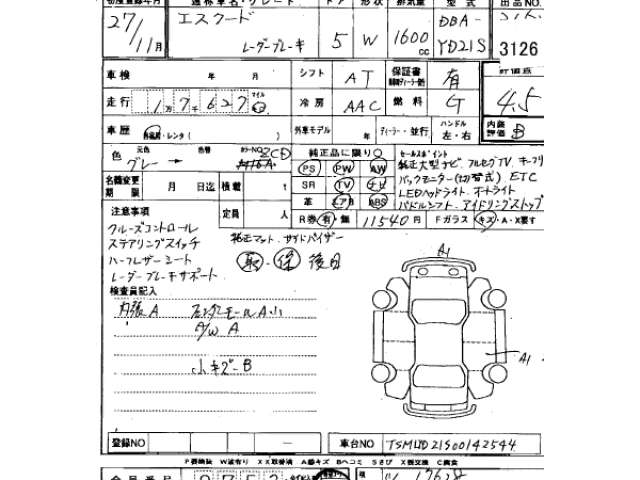 初度登録年月 通称車名・グレード ドア 形状 排気量 型式 出品NO.
27/11月 エスクード レーダーブレーキ 5 W 1600cc DBA-YD21S 3126
車検 年 月 シフト AT 保証書 有 評価点
走行 1万7千627 マイル km 冷房 AAC 燃料 G 4.5
車歴 自家用・レンタ( ) 外車モデル 年 ディーラー・並行 ハンドル 左・右 内装評価 B
色 元色 グレー → 色替 カラーNO ZCD 純正品に限り○ セールスポイント
PS PW AW 純正大型ナビ フルセグTV キーフリ
名義変更期限 月 日迄 積載 t SR TV ナビ バックモニター(切替式) ETC
革 エアB ABS LEDヘッドライト オートライト
定員 人 パドルシフト アイドリングストップ
R券 有・無 11540円 Fガラス キズ・A・X要す
注意事項
クルーズコントロール
ステアリングスイッチ 純正マット サイドバイザー
ハーフレザーシート 取・保 後日
レーダーブレーキサポート
検査員記入
内張A フェンダーモールA小
A/W A
小キズ-B
A1
A1
登録NO 車台NO TSMLYD21S00142544
P要補修 W波有り XX取替済 A線キズ Bヘコミ Sさび X要交換 C腐食
会員番号